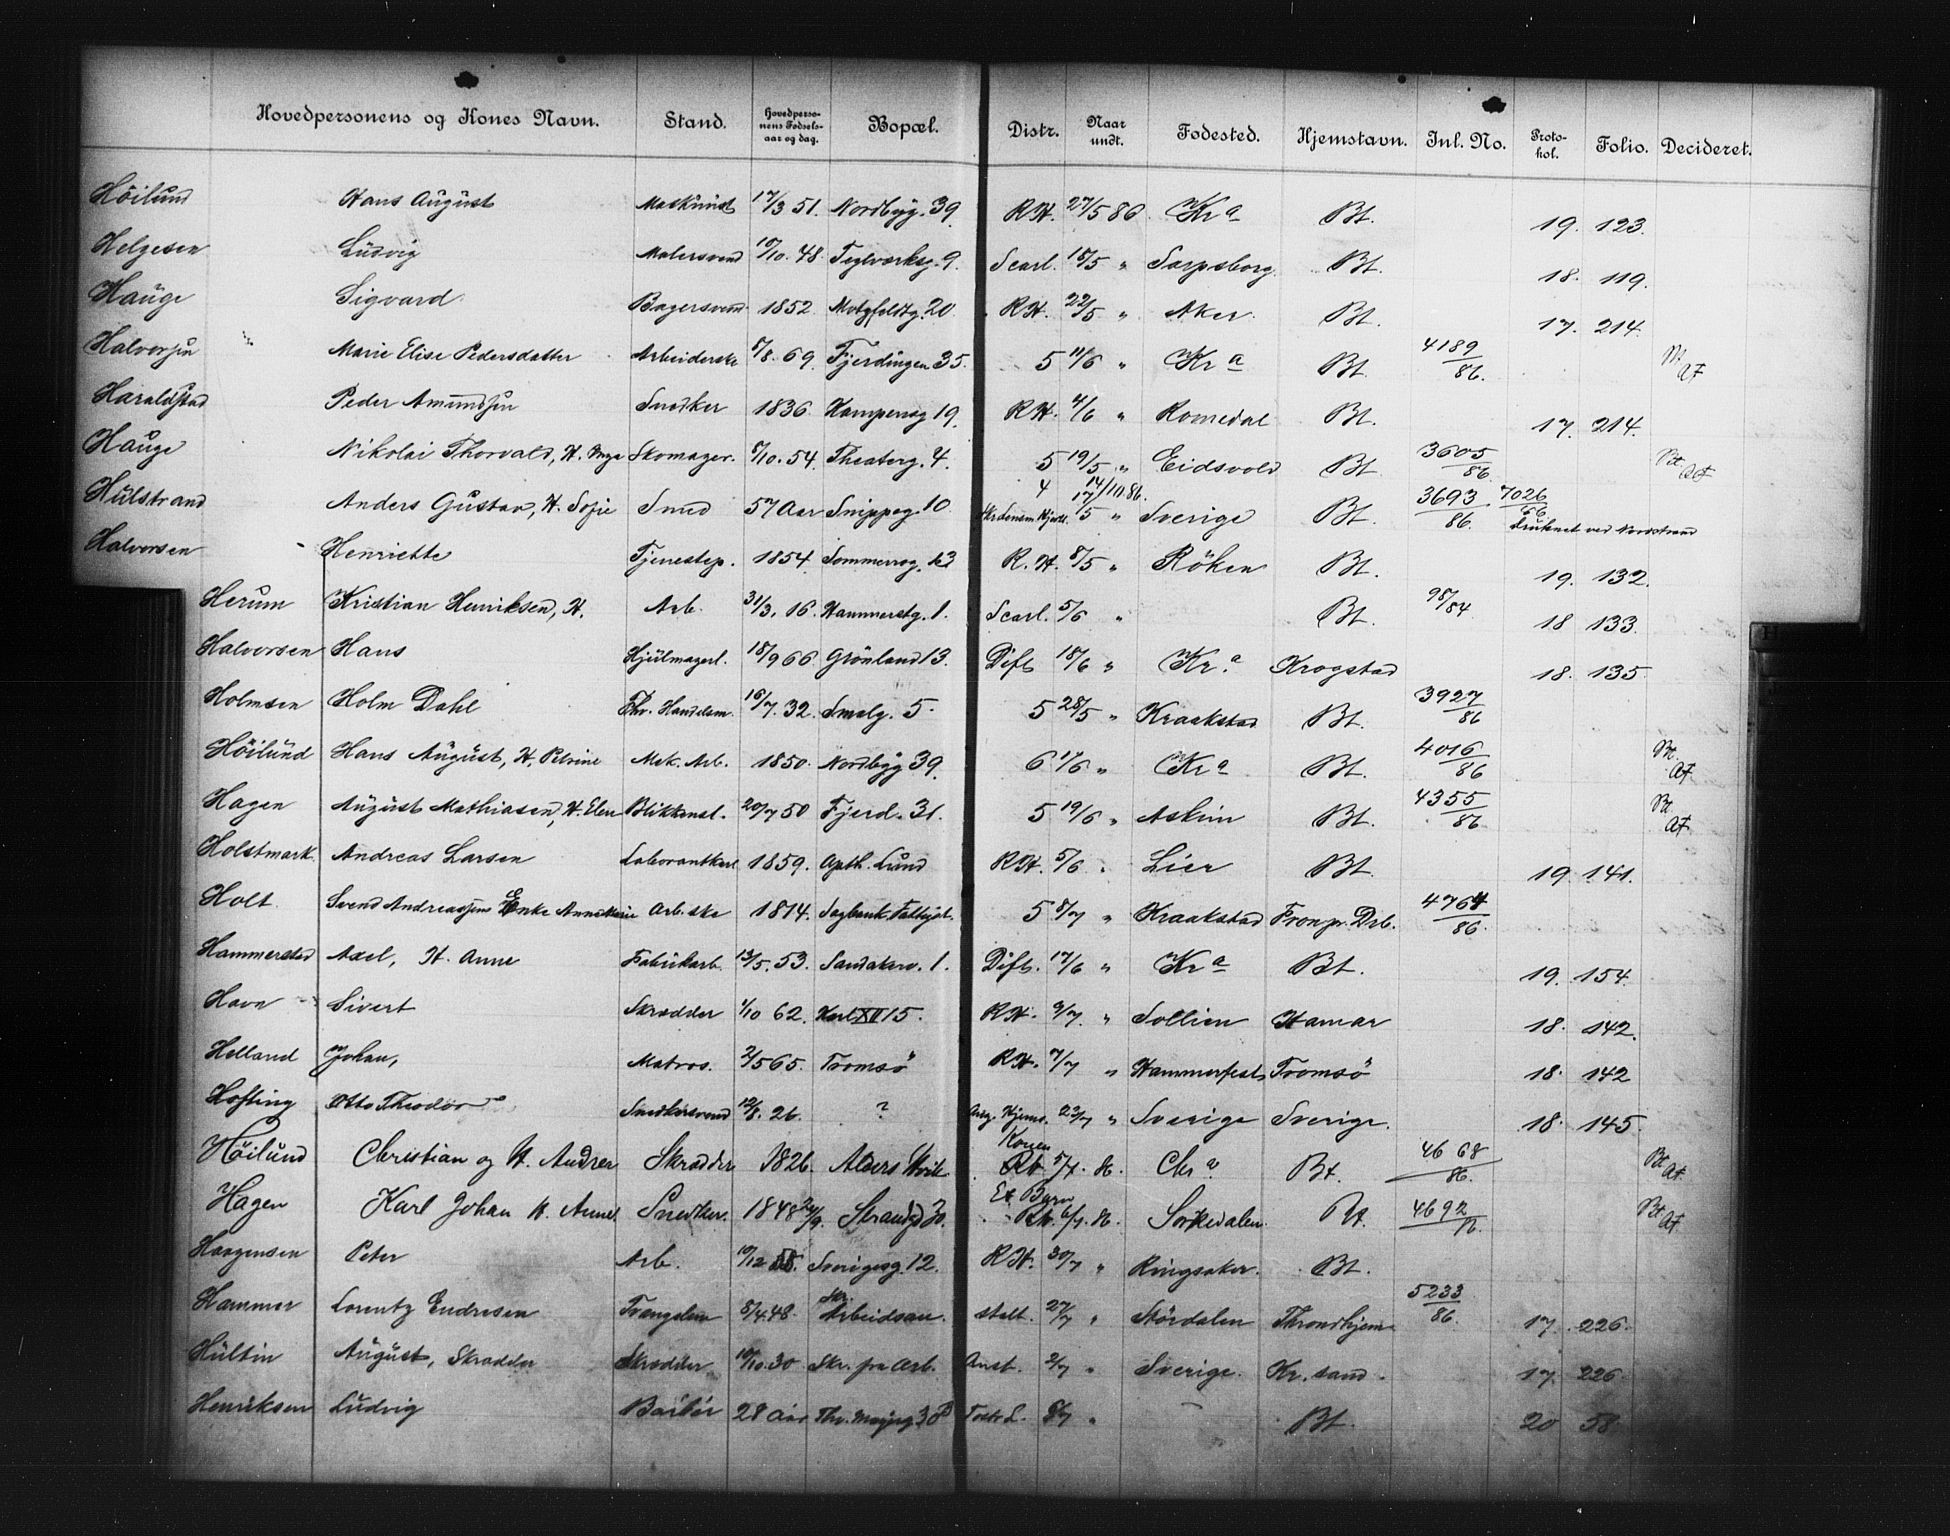 Hovedpersonens og Kones Navn. Stand. Hovedperso-nens Fødsels-aar og dag. Bopæl. Distr. Naar undt. Fødested. Hjemstavn. Inl. No. Proto-kol. Folio. Decideret.
Höilund Hans August Maskinist 17/3 51. Nordbyg. 39. RH. 27/5 86 Kr a Bt. 19. 123.
Helgesen Ludvig Malersvend 10/10. 48. Teglverksg. 9. Scarl. 15/5 " Sarpsborg Bt. 18. 119.
Hauge Sigvard Bagersvend 1852. Motzfeldtg. 20. RH. 22/5 " Aker. Bt. 17. 214.
Halvorsen Marie Elise Pedersdatter Arbeiderske 5/8. 69. Fjerdingen 35. 5 11/6 " Kr a Bt. 4189/86. Bt. AF
Haraldstad Peder Amundsen Snedker 1836. Kampensg 19. RH. 4/6 " Romedal Bt. 17. 214.
Hauge Nikolai Thorvald, H. Skomager. 5/10. 54. Theaterg. 4. 5 19/5 " Eidsvold Bt. 3605/86 Bt. AF
Hulstrand Anders Gustav, H. Sofie Smed 57 Aar Snippeg. 10 4 14/10.86. 17/5 " Sverige Bt. 3693/86. 7026/86 Druknet ved Nordstrand
Halvorsen Henriette Tjenestep. 1854. Sommerrog. 13 R.H. 8/5 " Röken Bt. 19. 132.
Herum Kristian Henriksen, H. Arb. 31/3. 16. Hammerstg. 1. Scarl. 5/6 " Bt. 98/84 18 133.
Halvorsen Hans Hjulmagerl. 18/9 66 Grönland 13. Dift 18/6 " Kr. a Krogstad 18. 135.
Holmsen Holm Dahl Fhv. Handelsm. 16/7. 32. Smalg. 5. 5 28/5 " Kraakstad Bt. 3927/86
Höilund Hans August, H. Petrine Mek. Arb. 1850. Nordbyg 39. 6 17/6 " Kr a Bt. 4016/86 Bt. AF
Hagen August Mathiasen, H. Elen Blikkensl. 20/7 50 Fjerd. 31. 5 19/6 " Askim Bt. 4355/86 Bt. AF
Holstmark. Andreas Larsen Laborantkarl 1859. Apth. Lund RH. 5/6 " Lier Bt. 19. 141.
Holt. Svend Andreassens Enke Anne Marie Arb.ske 1814. 5 8/7 " Kraakstad Frogn. Drb. 4764/86.
Hammerstad Axel, H. Anne Fabrikarb. 13/5. 53. Sandakerv. 1. Dift. 17/6 " Kr a Bt. 19. 154.
Havn Sivert Skrædder 1/10 62. Karl XII 15. RH. 9/7 " Sollien Hamar 18. 142.
Helland Johan, Matros. 2/5 65. Tromsö RH. 7/7 " Hammerfest Tromsö 18. 142
Hofting Otto Theodor Snedkersvend 12/8. 26. ? 23/7 " Sverige Sverige. 18. 145.
Höilund Christian og H. Andrea Skrædder 1826. Akers Hvik Konen Rh. 5/7. 86. Chr a Bt. 4668/86. Bt. AF
Hagen Karl Johan H. Anne Snedker. 1848 Strandg 30. Et Barn Rh. 6/7. 86. Sörkedalen. Bt. 4692/86. Bt. AF
Haagensen Peter Arb. 10/12 58. Sverigesg. 12. RH. 30/7 " Ringsaker. Bt.
Hammer Lorentz Endresen Tvangslem 5/4. 48. Arbeidsan. stalt. 27/7 " Stördalen Throndhjem 5233/86. 17. 226.
Hultin August, Skrædder Skrædder 10/10. 30 Skr. fra Arb. Anst. 2/7 " Sverige. Kr. sand. 17. 226.
Henriksen Ludvig Barber 28 Aar Bt. 20 58.